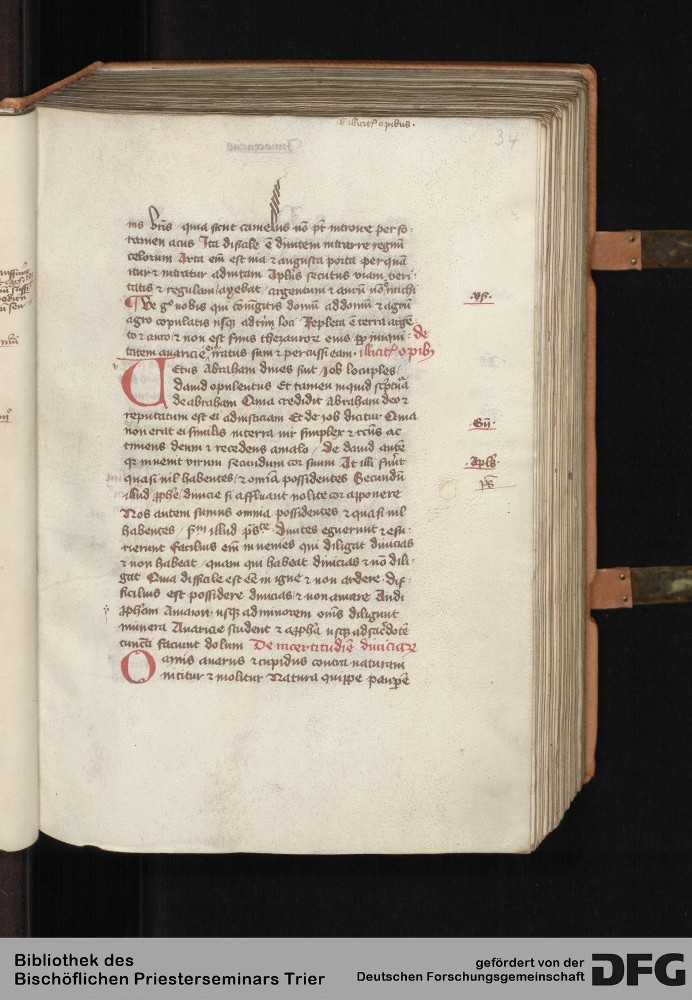 d illicit? opibus.
34
ms dr̄s quia sicut camelus nō pt̄ introire per fo-
ramen acus Ita difficile ē diuitem intrare regnū
celorum Arta em̄ est uia ⁊ angusta porta per quā
itur ⁊ intratur ad uitam Aplūs secutus uiam veri
tatis ⁊ regulam / ayebat / argentum ⁊ aurū nō michi
Ve g° uobis qui coniūgitis domū ad domū ⁊ agrū
agro copulatis usq̨ ad fim̄ loci Repleta ē terra argē
to ⁊ auro ⁊ non est finis thezauror̨ eius ꝓp iniqui de
tatem auaricie iratus sum ⁊ percussi eam illicit? opib9
Uetus Abraham diues fuit Job locuples
dauid opulentus Et tamen inquid sc̄ptura
de abraham Quia credidit Abraham deo ⁊
reputatum est ei ad iusticiam Et de iob dicitur Quia
non erat ei similis in terra uir simplex ⁊ rc̄us ac
timens deum ⁊ recedens a malo / De dauid aute
q̨ inuenit virum secundum cor suum At illi fuer̄t
quasi nil habentes / ⁊ omīa possidentes Secundū
illud ꝓphe / diuicie si affluant nolite cor apponere
Nos autem sumus omnia possidentes ⁊ quasi nil
habentes / s̄m illud ps̄te Diuites eguerunt ⁊ esu-
rierunt Facilius em̄ inuenies qui diligat diuicias
⁊ non habeat / quam qui habeat diuicias ⁊ nō dili-
gat Quia difficile est eē in igne ⁊ non ardere dif-
ficilius est possidere diuicias ⁊ non amare Audi
ꝓphām Auaior̄ usq̨ ad minorem om̄s diligunt
munera Auaricie student ⁊ a ꝓpha usq̨ ad sacdotē
cuncti faciunt dolum De incertitudīe diuiciar̨
Omnis auarus ⁊ cupidus contra naturam
nititur ⁊ molitur Natura quippe paupēre
.ys.
.Gn̄.
.Apls.
ps̄
Bibliothek des
Bischöflichen Priesterseminars Trier
gefördert von der
Deutschen Forschungsgemeinschaft
DFG